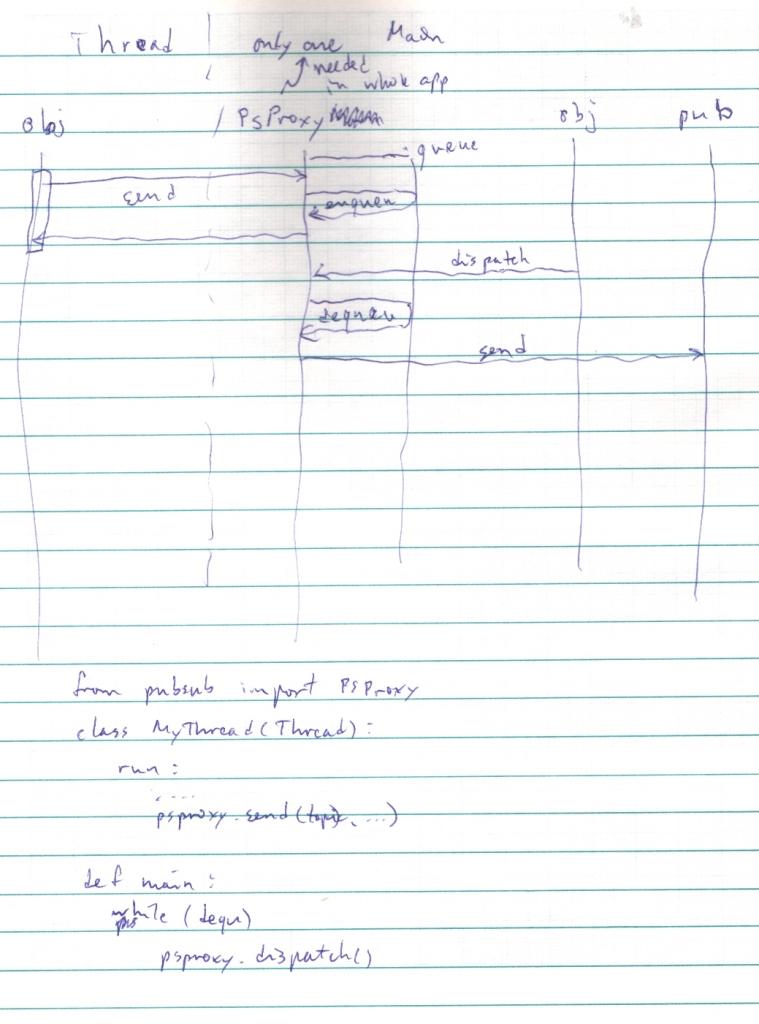 Thread only one Main
needed
in whole app
obj PsProxy obj pub
queue
send enqueu
dispatch
dequeu
send
from pubsub import PSProxy
class MyThread(Thread):
run:
.....
psproxy.send(topic, ...)
def main:
while (dequ)
psproxy.dispatch()